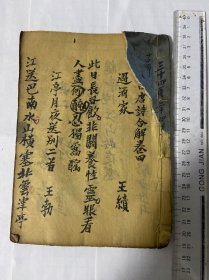 唐詩分解卷四
過酒家 王績
此日長昏飲非關養性靈眼看
人盡醉何忍獨為醒
江亭月夜送別二首 王勃
江送巴南水山橫塞北雲津亭